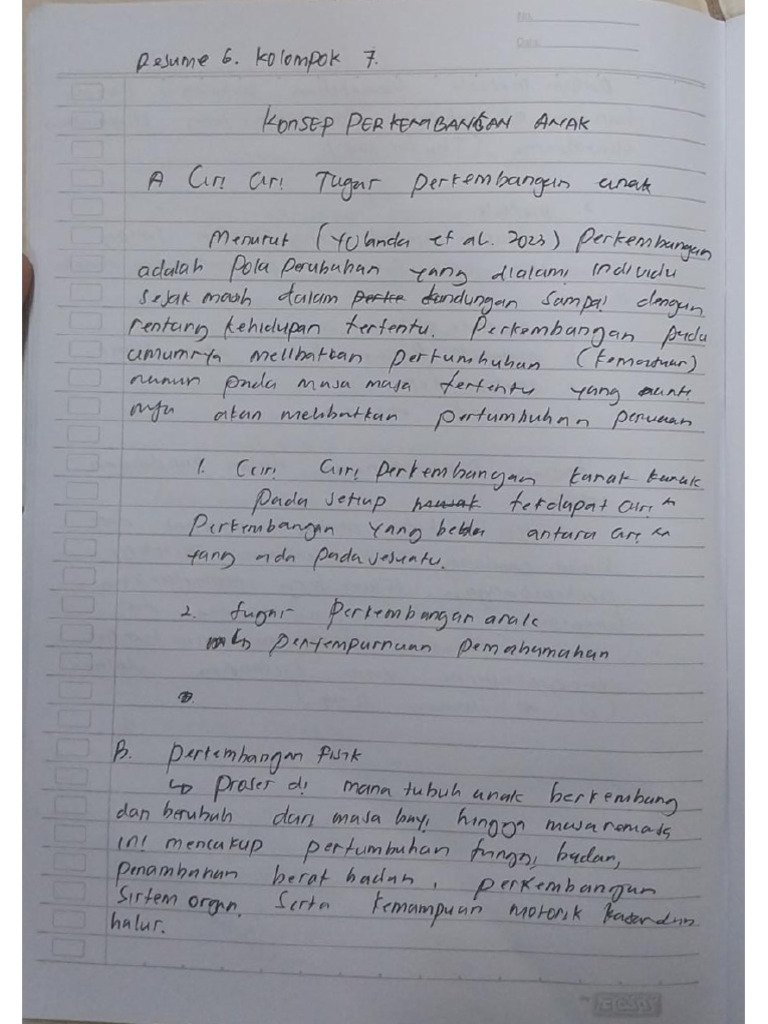 No.
Date
Resume 6. Kolompok 7.
KONSEP PERKEMBANGAN ANAK
A Ciri Ciri Tugas perkembangan anak
Menurut (Yolanda et al. 2023) perkembangan
adalah pola perubahan yang dialami individu
sejak masih dalam kandungan sampai dengan
rentang kehidupan tertentu. Perkembangan pada
umumnya melibatkan pertumbuhan (kematuan)
namun pada masa masa tertentu yang
nya akan melibatkan pertumbuhan penuaan
1. Ciri Ciri perkembangan kanak kanak
pada setiap terdapat ciri
perkembangan yang beda antara ciri
yang ada pada sesuatu.
2. tugas perkembangan anak
↳ penyempurnaan pemahamahan
B. perkembangan fisik
↳ proses di mana tubuh anak berkembang
dan berubah dari masa bayi hingga masa remaja
ini mencakup pertumbuhan tinggi badan,
penambahan berat badan, perkembangan
sistem organ. Serta kemampuan motorik kasar dan
halus.